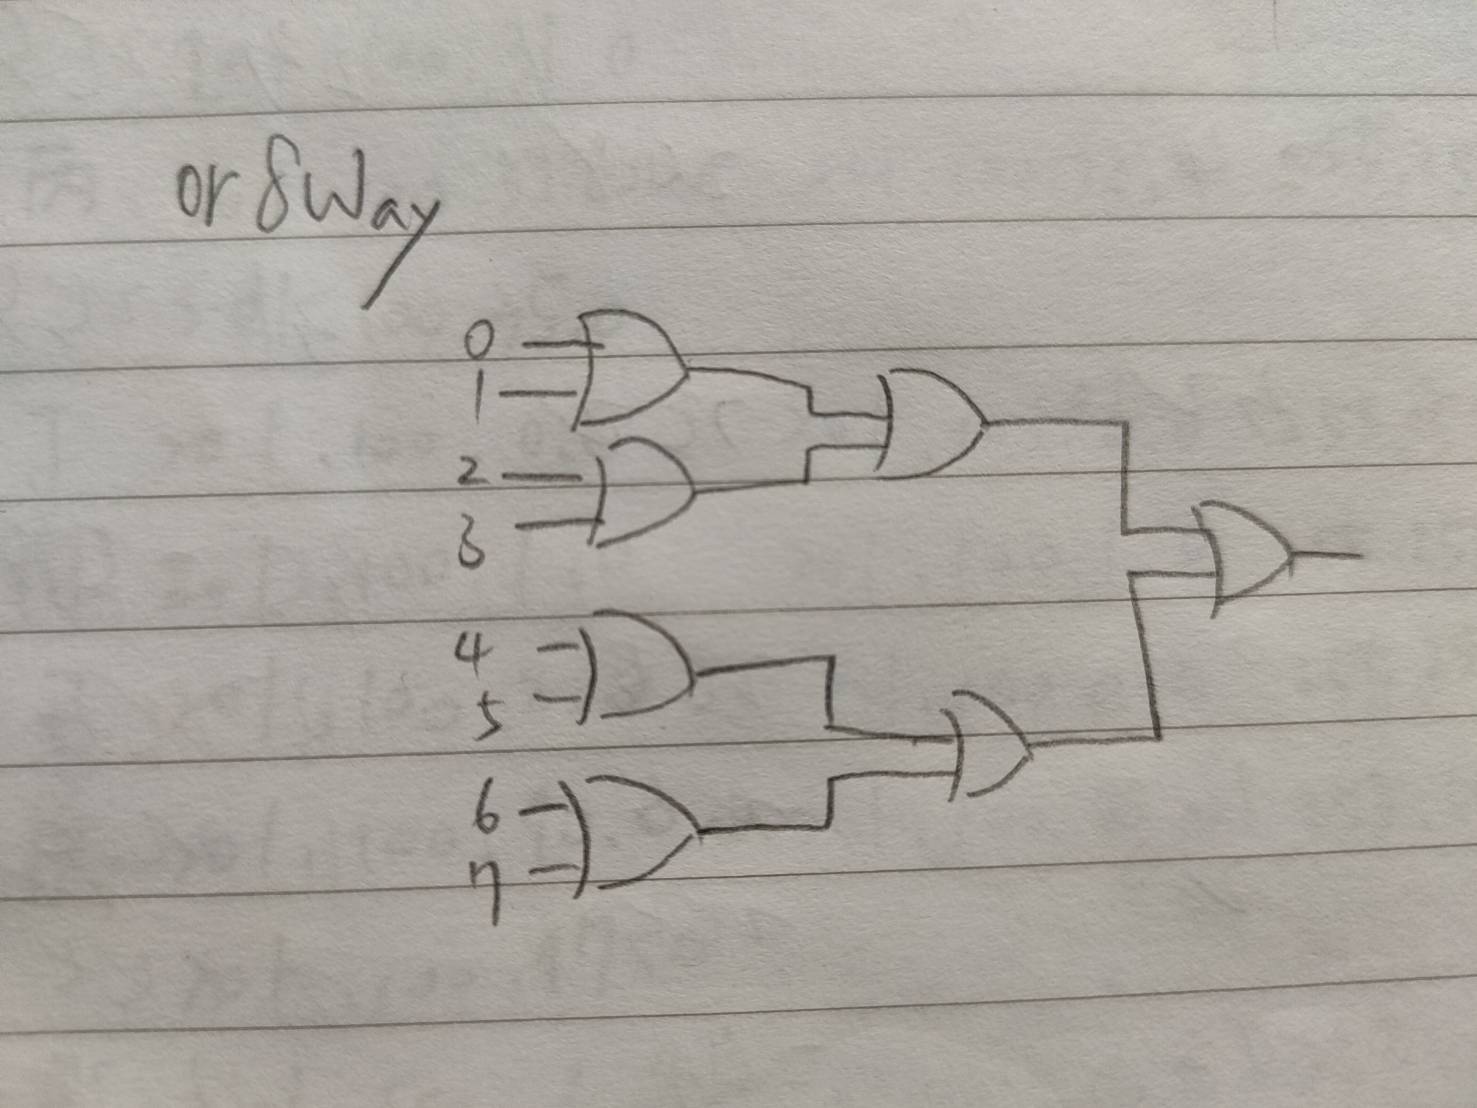 or 8Way
0
1
2
3
4
5
6
7